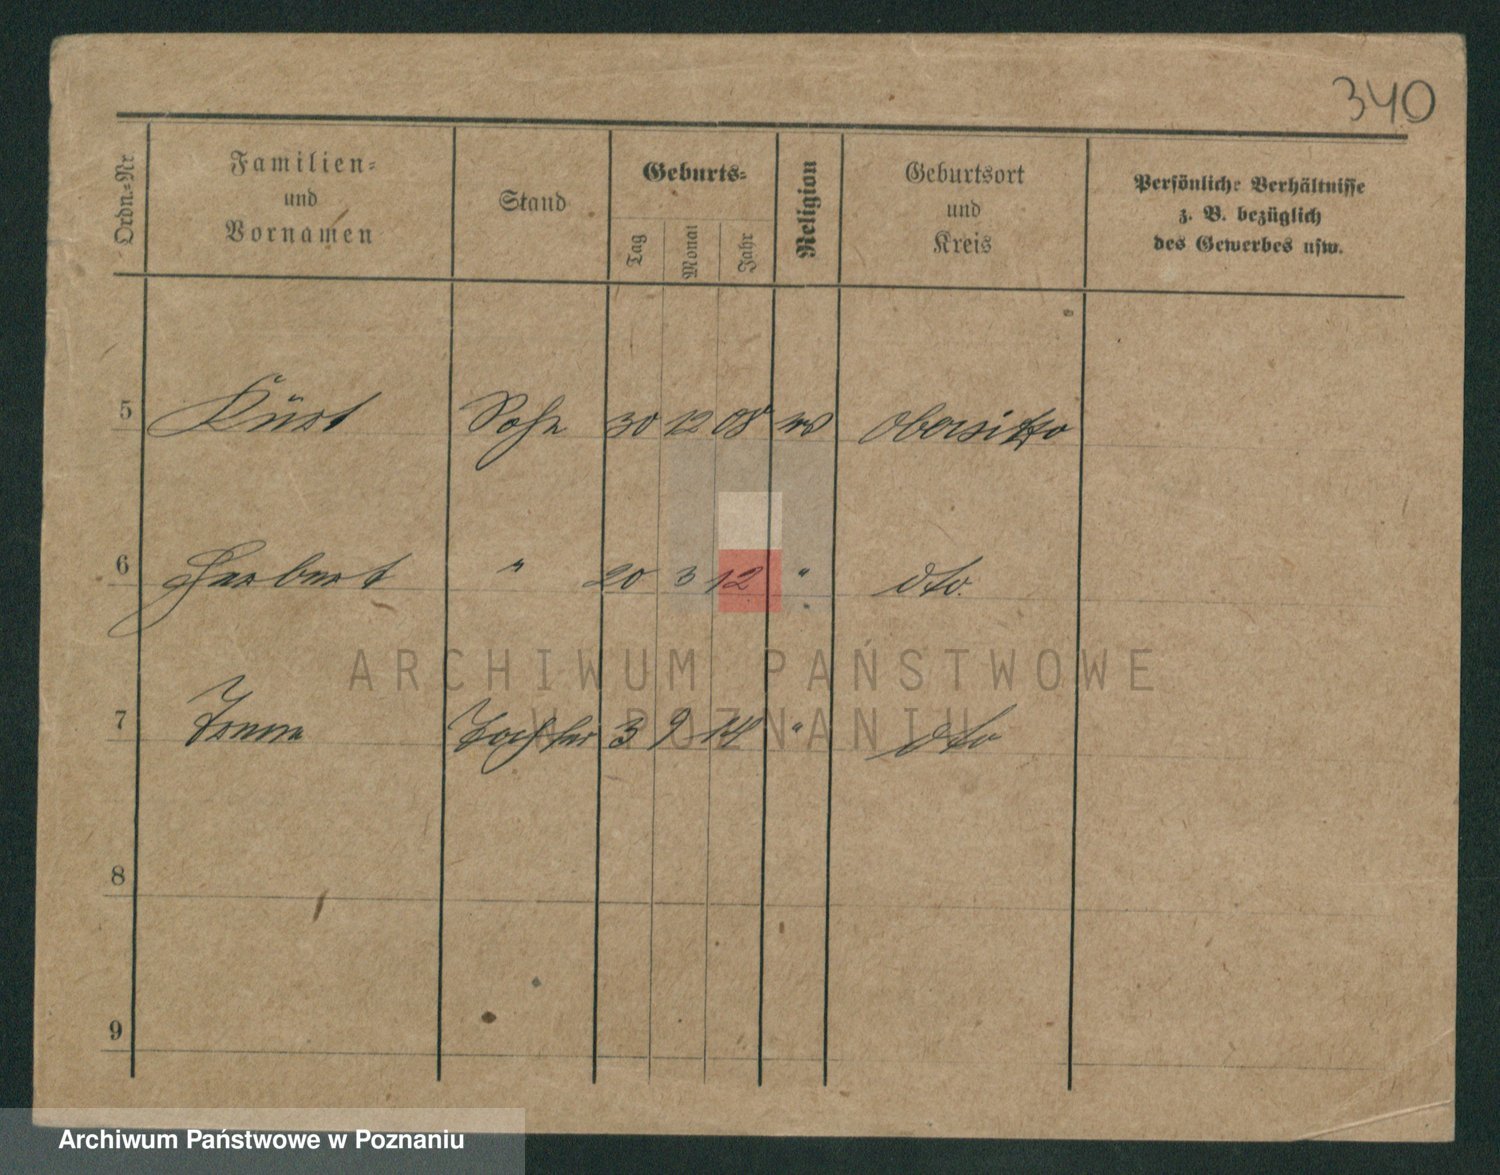 340
Ordn.=Nr.
Familien=
und
Vornamen
Stand
Geburts=
Tag
Monat
Jahr
Religion
Geburtsort
und
Kreis
Persönliche Verhältnisse
z. B. bezüglich
des Gewerbes usw.
5 Kurt Sohn 30 12 08 Obersitzko
6 Herbert " 20 3 12 " dto.
ARCHIWUM PAŃSTWOWE
W POZNANIU
7 Irene Tochter 3 9 14 " dto
8
9
Archiwum Państwowe w Poznaniu